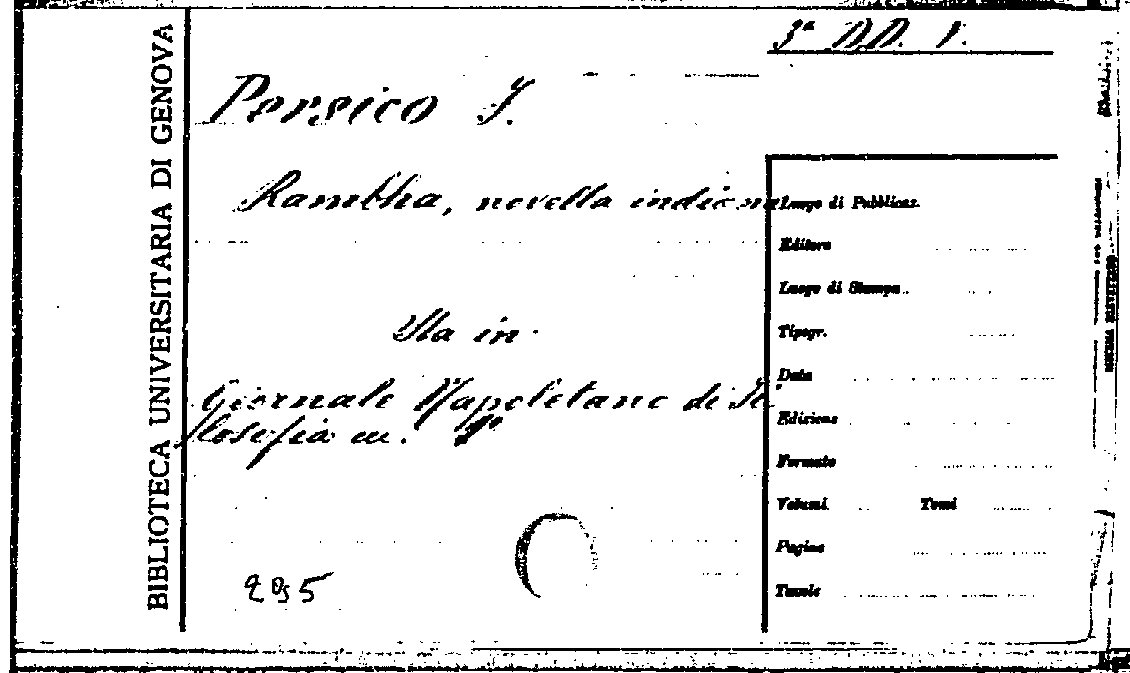 BIBLIOTECA UNIVERSITARIA DI GENOVA
3ª DD. V.
Persico F.
Rambha, novella indiana
Sta in
Giornale Napoletano di Fi
losofia
295
Luogo di Pubblicaz.
Editore
Luogo di Stampa
Tipogr.
Data
Edizione
Formato
Volumi Tomi
Pagine
Tavole